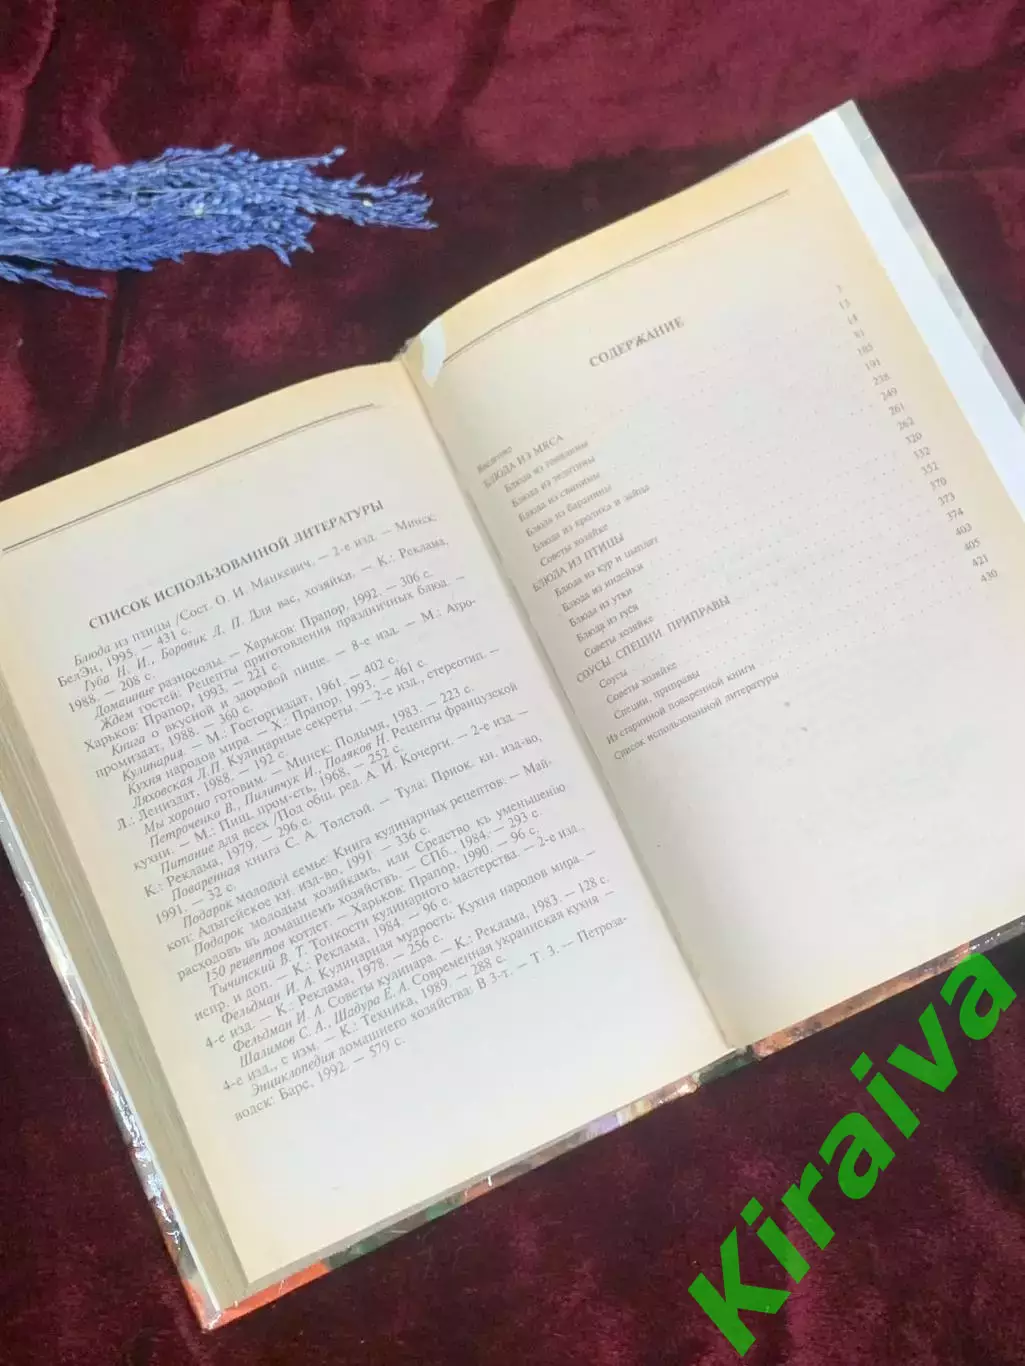 СПИСОК ИСПОЛЬЗОВАННОЙ ЛИТЕРАТУРЫ
Блюда из птицы /Сост. О. И. Манкевич. — 2-е изд. — Минск:
БелЭн, 1995. — 431 с.
Губа Н. И., Боровик Л. П. Для вас, хозяйки. — К.: Реклама,
1988. — 208 с.
Домашние разносолы. — Харьков: Прапор, 1992. — 306 с.
Ждем гостей: Рецепты приготовления праздничных блюд. —
Харьков: Прапор, 1993. — 221 с.
Книга о вкусной и здоровой пище. — 8-е изд. — М.: Агро-
промиздат, 1988. — 360 с.
Кулинария. — М.: Госторгиздат, 1961. — 402 с.
Кухня народов мира. — Х.: Прапор, 1993. — 461 с.
Ляховская Л.П. Кулинарные секреты. — 2-е изд., стереотип. —
Л.: Лениздат, 1988. — 192 с.
Мы хорошо готовим. — Минск: Полымя, 1983. — 223 с.
Петроченко В., Пилипчук И., Поляков Н. Рецепты французской
кухни. — М.: Пищ. пром-сть, 1968. — 252 с.
Питание для всех /Под общ. ред. А. И. Кочерги. — 2-е изд. —
К.: Реклама, 1979. — 296 с.
Поваренная книга С. А. Толстой. — Тула: Приок. кн. изд-во,
1991. — 32 с.
Подарок молодой семье: Книга кулинарных рецептов: — Май-
коп: Адыгейское кн. изд-во, 1991 — 336 с.
Подарок молодым хозяйкамъ, или Средство къ уменьшенію
расходовъ въ домашнемъ хозяйствѣ. — СПб., 1984. — 293 с.
150 рецептов котлет. — Харьков: Прапор, 1990. — 96 с.
Тычинский В. Т. Тонкости кулинарного мастерства. — 2-е изд.,
испр. и доп. — К.: Реклама, 1984. — 96 с.
Фельдман И. Л. Кулинарная мудрость: Кухня народов мира. —
4-е изд. — К.: Реклама, 1978. — 256 с.
Фельдман И. Л. Советы кулинара. — К.: Реклама, 1983. — 128 с.
Шалимов С. А., Шадура Е. А. Современная украинская кухня —
4-е изд., с изм. — К.: Техника, 1989. — 288 с.
Энциклопедия домашнего хозяйства: В 3-т. — Т. 3. — Петроза-
водск: Барс, 1992. — 579 с.
СОДЕРЖАНИЕ
Введение 3
БЛЮДА ИЗ МЯСА 13
Блюда из говядины 14
Блюда из телятины 81
Блюда из свинины 105
Блюда из баранины 191
Блюда из кролика и зайца 238
Советы хозяйке 249
БЛЮДА ИЗ ПТИЦЫ 261
Блюда из кур и цыплят 262
Блюда из индейки 320
Блюда из утки 332
Блюда из гуся 352
Советы хозяйке 370
СОУСЫ СПЕЦИИ ПРИПРАВЫ 373
Соусы 374
Советы хозяйке 403
Специи, приправы 405
Из старинной поваренной книги 421
Список использованной литературы 430
Kiraiva